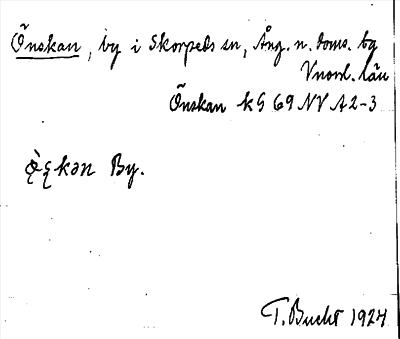 Önskan, by i Skorpeds sn, Ång. n. doms. bg
Vnorrl. län
Önskan kG 69 NV A2-3
By.
T. Bucht 1924